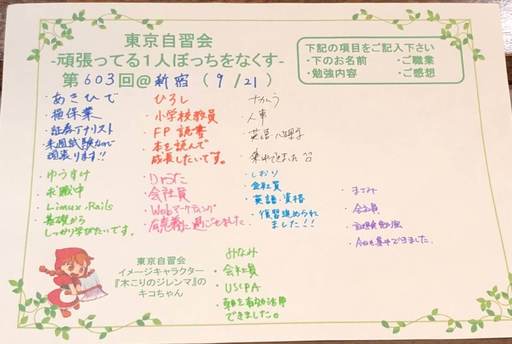 東京自習会
-頑張ってる1人ぼっちをなくす-
第603回@新宿(9/21)
下記の項目をご記入下さい
・下のお名前 ・ご職業
・勉強内容 ・ご感想
・あきひで
・損保業
・証券アナリスト
・来週試験なので
頑張ります!!
・ひろし
・小学校教員
・FP 読書
・本を読んで
成長したいです。
・人事
・英語 心理学
・集中できました
・ゆうすけ
・求職中
・Linux・Rails
・基礎から
しっかり学びたいです。
・会社員
・Webマーケティング
・有意義に過ごせました。
・しおり
・会社員
・英語・資格
・復習進められ
ました!!
・まさみ
・会社員
・今日も集中できました。
・みなみ
・会社員
・USCPA
できました。
東京自習会
イメージキャラクター
『木こりのジレンマ』の
キコちゃん